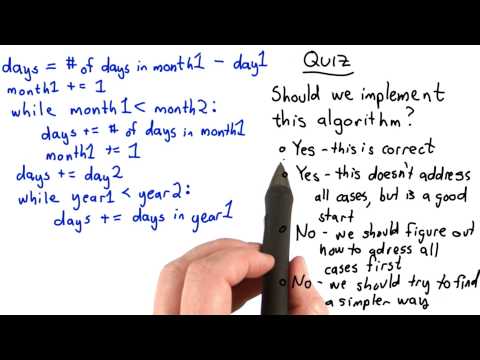 days = # of days in month1 - day1
month1 += 1
while month1 < month2:
days += # of days in month1
month1 += 1
days += day2
while year1 < year2:
days += days in year1
QUIZ
Should we implement
this algorithm?
Yes - this is correct
Yes - this doesn't address
all cases, but is a good
start
No - we should figure out
how to adress all
cases first
No - we should try to find
a simpler way